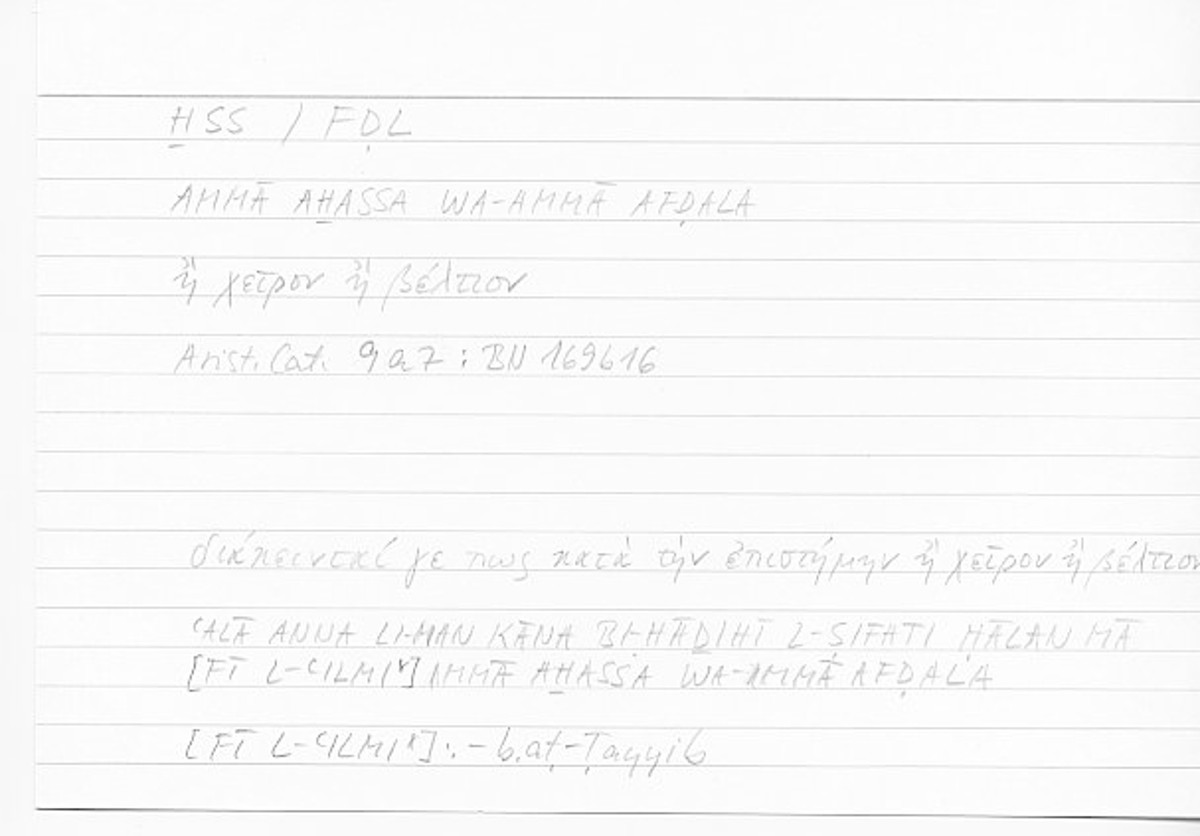 H̱SS / FḌL
AMMĀ AH̱ASSA WA-AMMĀ AFḌALA
ἢ χεῖρον ἢ βέλτιον
Arist. Cat. 9a7 : BN 169b16
διάκεινταί γε πως κατὰ τὴν ἐπιστήμην ἢ χεῖρον ἢ βέλτιον
ʿALĀ ANNA LI-MAN KĀNA BI-HĀḎIHĪ L-ṢIFATI ḤĀLAN MĀ
[FĪ L-ʿILMI] IMMĀ AH̱ASSA WA-AMMĀ AFḌALA
[FĪ L-ʿILMI] : – b. aṭ-Ṭayyib